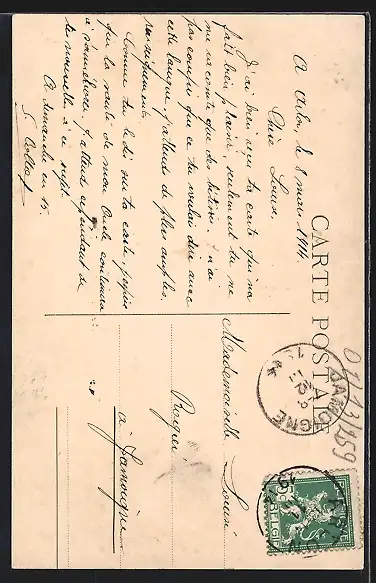 CARTE POSTALE
Arlon, le 8 mars 1914.
Chère Louise,
J'ai bien reçu ta carte qui m'a
fait bien plaisir, seulement tu ne
me racontes que des bêtises. Je n'ai
pas compris ce que tu voulais dire avec
cette langue, j'attends de plus amples
renseignements.
Comme tu le dis sur ta carte, j'espère
que la santé de mon Oncle continuera
à s'améliorer. J'attends cependant de
tes nouvelles à ce sujet.
A dimanche en 15.
Mademoiselle Louise
Roger
à Jamoigne
JAMOIGNE
BELGIE
07/13/459